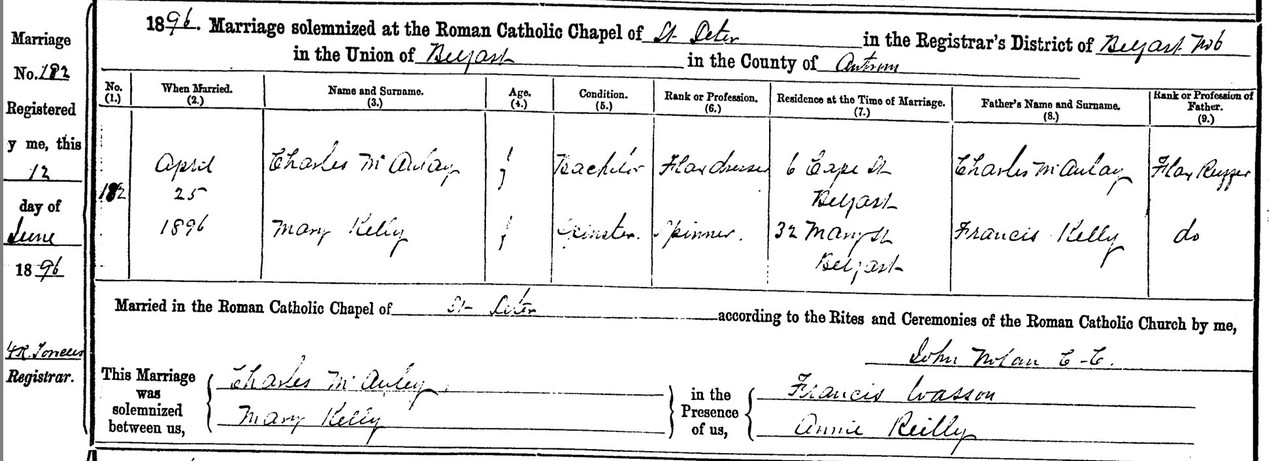 Marriage
No. 182
Registered
y me, this
12
day of
June
1896
Registrar.
1896. Marriage solemnized at the Roman Catholic Chapel of St. Peter in the Registrar's District of Belfast No 6
in the Union of Belfast in the County of Antrim
No. (1.) When Married. (2.) Name and Surname. (3.) Age. (4.) Condition. (5.) Rank or Profession. (6.) Residence at the Time of Marriage. (7.) Father's Name and Surname. (8.) Rank or Profession of Father. (9.)
182 April 25 1896
Charles McAulay f Bachelor Flaxdresser 6 Cape St Belfast Charles McAulay Flax Rugger
Mary Kelly f Spinster. Spinner. 32 Mary St Belfast Francis Kelly do
Married in the Roman Catholic Chapel of St Peter according to the Rites and Ceremonies of the Roman Catholic Church by me,
John Nolan C.C.
This Marriage was solemnized between us,
Charles McAuley
Mary Kelly
in the Presence of us,
Francis Wasson
Annie Reilly